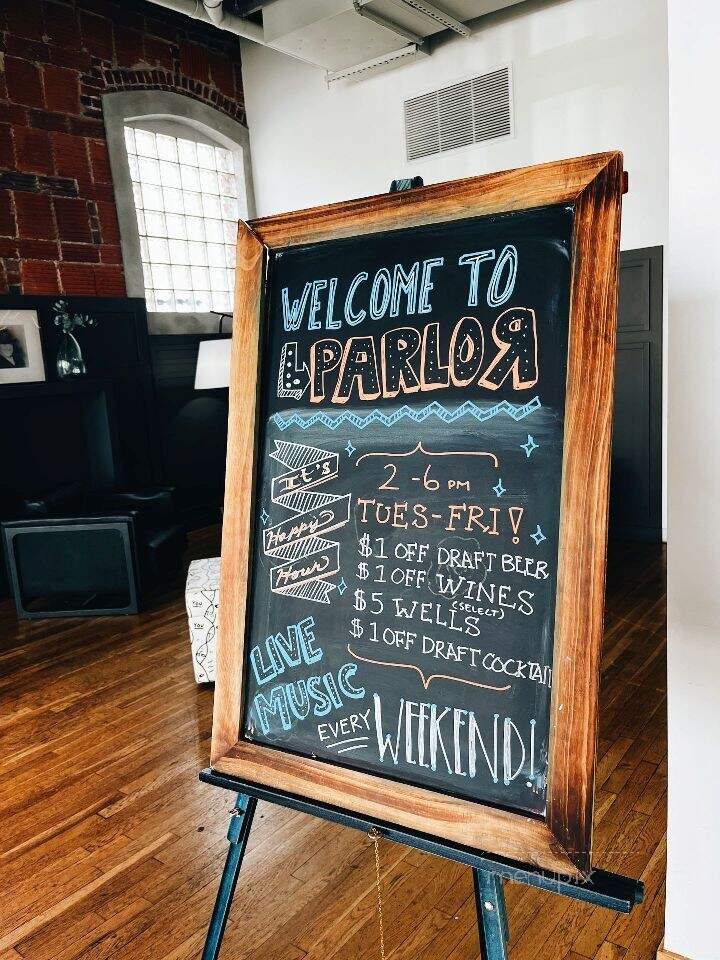 WELCOME TO
PARLOR
It's
Happy
Hour
2-6 PM
TUES-FRI!
$1 OFF DRAFT BEER
$1 OFF WINES
(SELECT)
$5 WELLS
$1 OFF DRAFT COCKTAIL
LIVE
MUSIC
EVERY WEEKEND!
menupix